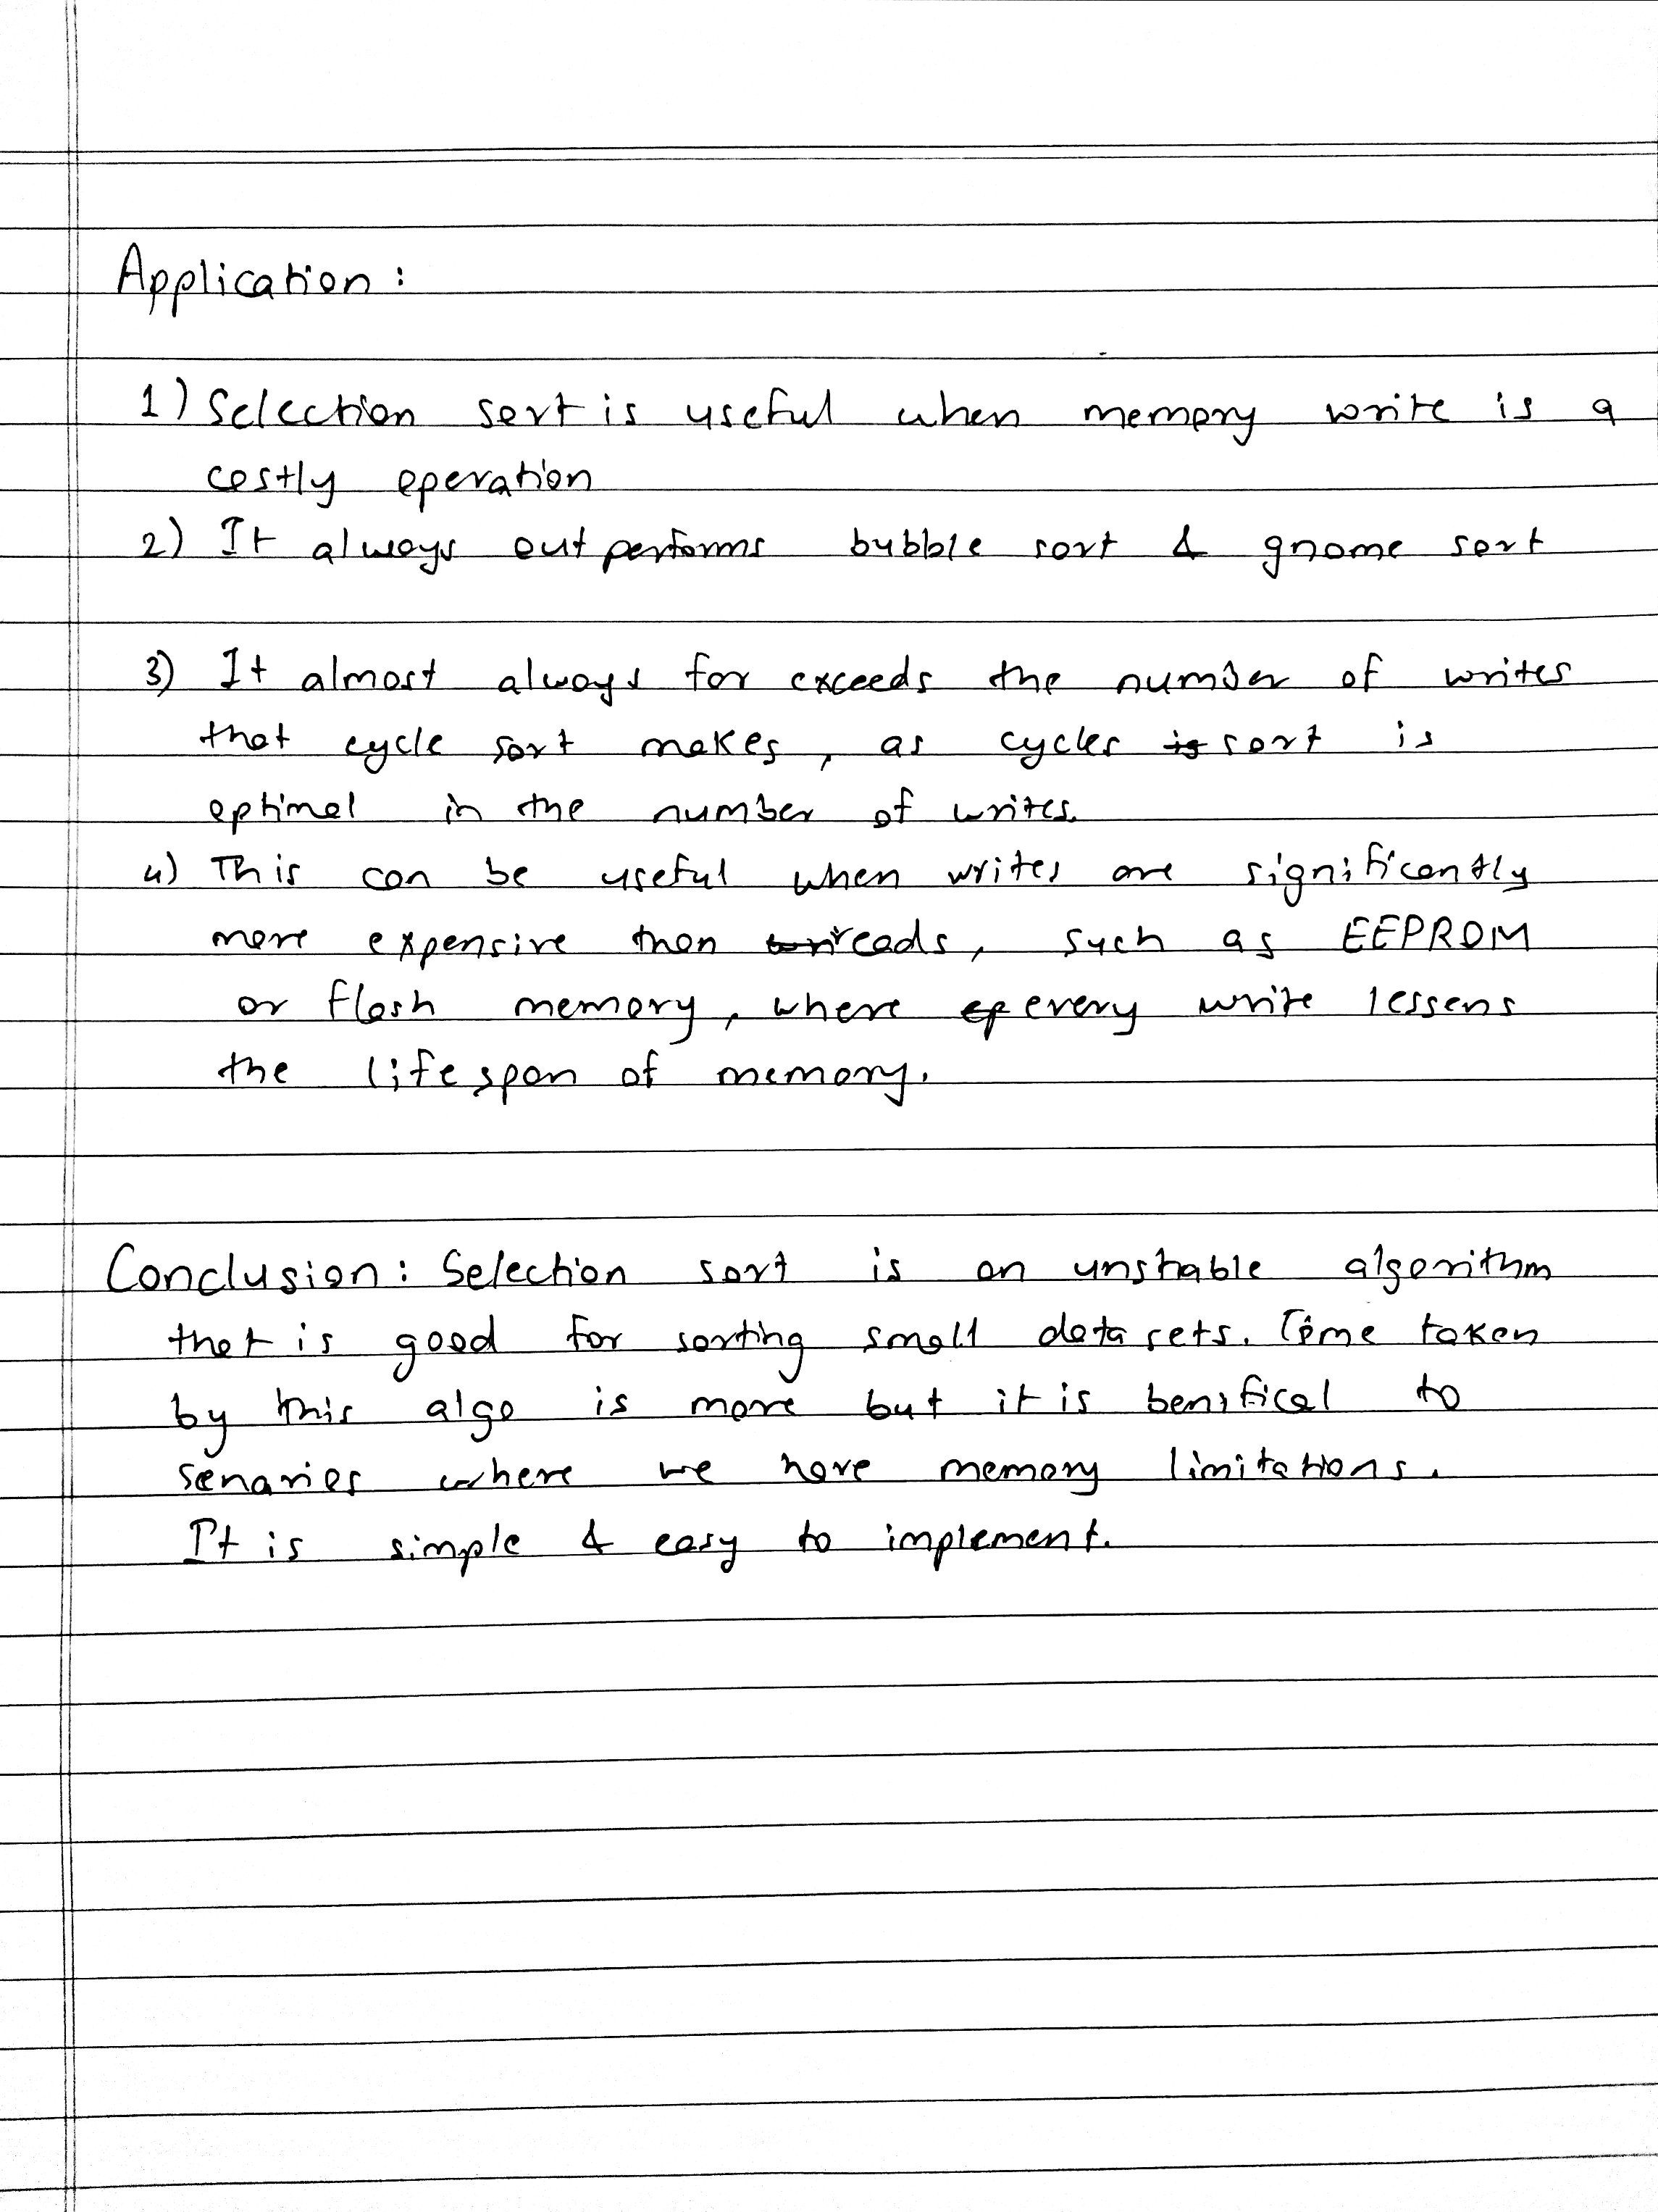 Application :
1) Selection sort is useful when memory write is a
costly operation
2) It always outperforms bubble sort & gnome sort
3) It almost always far exceeds the number of writes
that cycle sort makes, as cycles is sort is
optimal in the number of writes.
4) This can be useful when writes are significantly
more expensive than reads, such as EEPROM
or flash memory, where every write lessens
the lifespan of memory.
Conclusion : Selection sort is an unstable algorithm
that is good for sorting small data sets. Time taken
by this algo is more but it is benifical to
senarios where we have memory limitations.
It is simple & easy to implement.